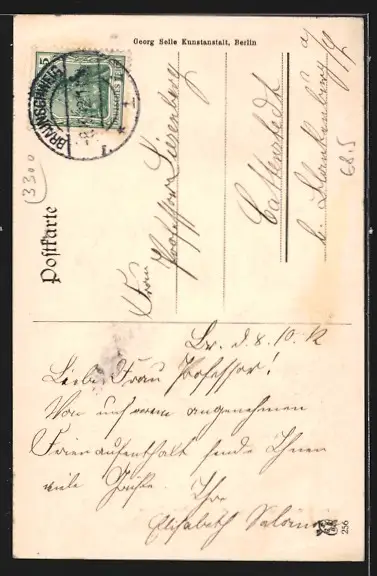 Georg Selle Kunstanstalt, Berlin
5
BRAUNSCHWEIG
8.10.12
1
*
1.
Postkarte
Frau
Professor
Cattenstedt
b. Blankenburg a/H
3300
68.5
Br. d. 8.10.12
Liebe Frau Professor!
Von angenehmen
Ferienaufenthalt sende Ihnen
viele Grüße. Ihre
Elisabeth
256